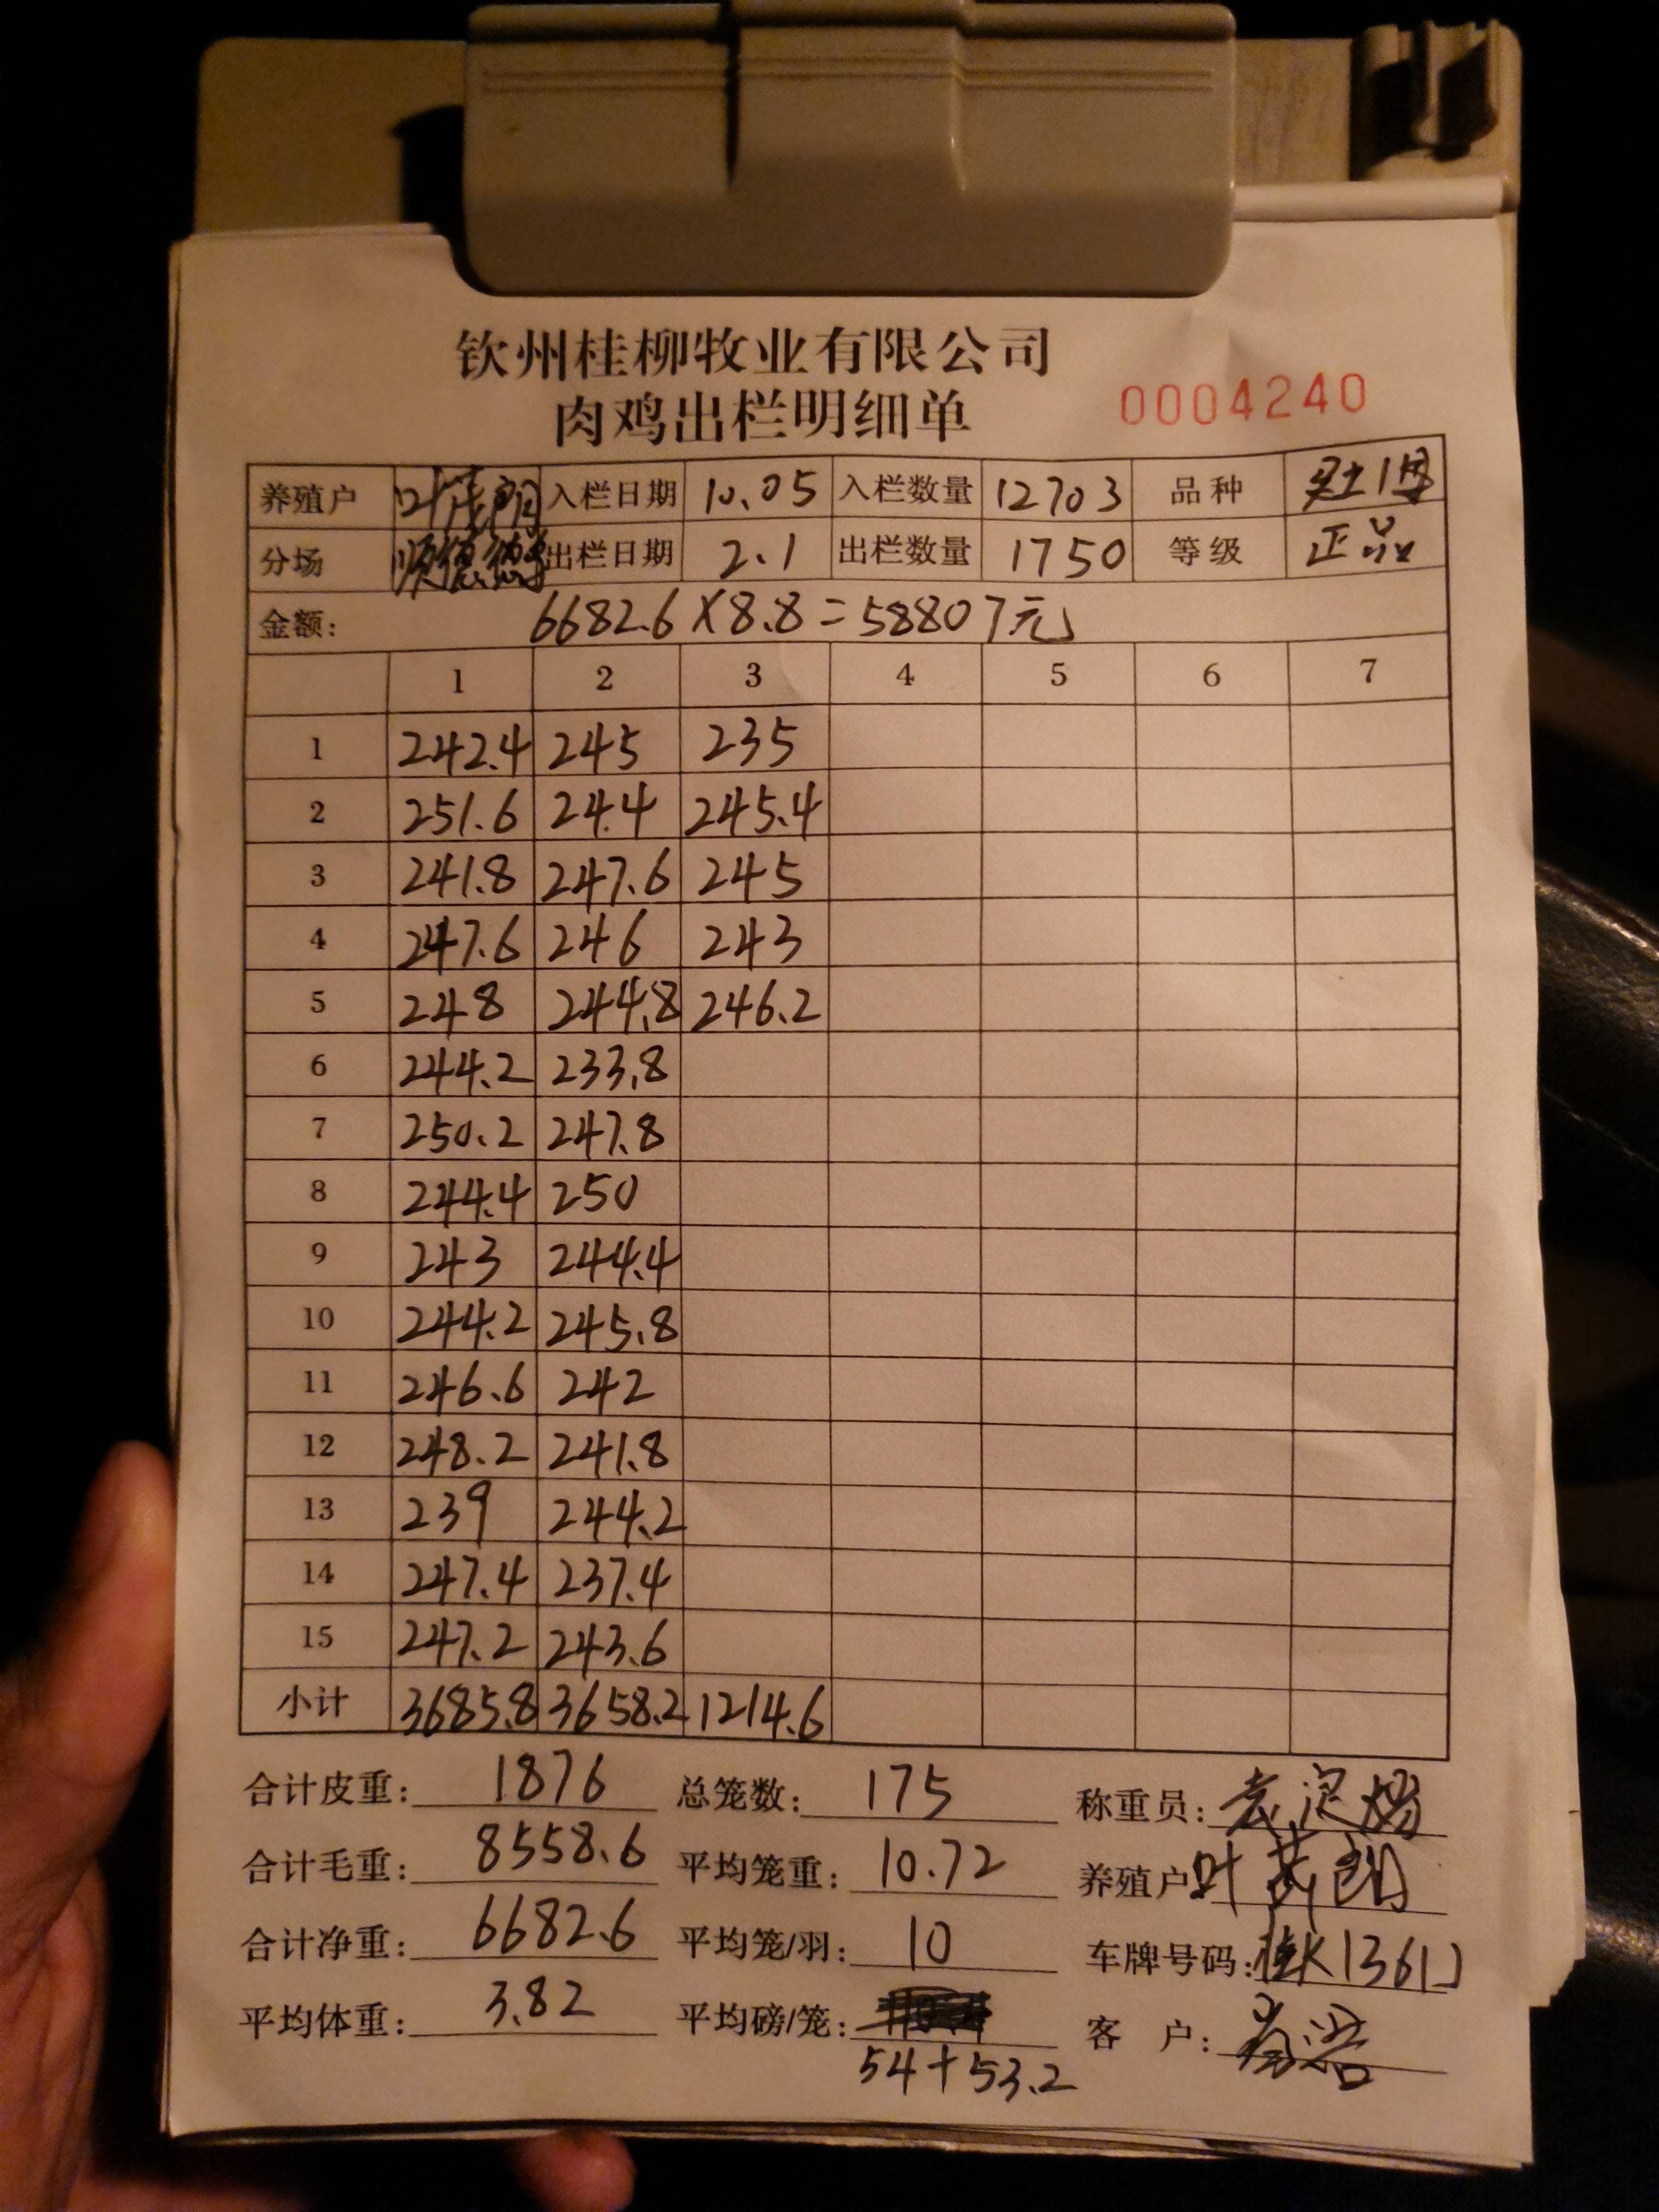 钦州桂柳牧业有限公司
肉鸡出栏明细单 0004240
养殖户 叶茂朗 入栏日期 10.05 入栏数量 12703 品种
分场 出栏日期 2.1 出栏数量 1750 等级 正品
金额: 6682.6×8.8=58807元
1 2 3 4 5 6 7
1 242.4 245 235
2 251.6 244 245.4
3 241.8 247.6 245
4 247.6 246 243
5 248 244.8 246.2
6 244.2 233.8
7 250.2 247.8
8 244.4 250
9 243 244.4
10 244.2 245.8
11 246.6 242
12 248.2 241.8
13 239 244.2
14 247.4 237.4
15 247.2 243.6
小计 3685.8 3658.2 1214.6
合计皮重: 1876 总笼数: 175 称重员:
合计毛重: 8558.6 平均笼重: 10.72 养殖户: 叶茂朗
合计净重: 6682.6 平均笼/羽: 10 车牌号码: 桂K1361J
平均体重: 3.82 平均磅/笼: 客 户:
54+53.2